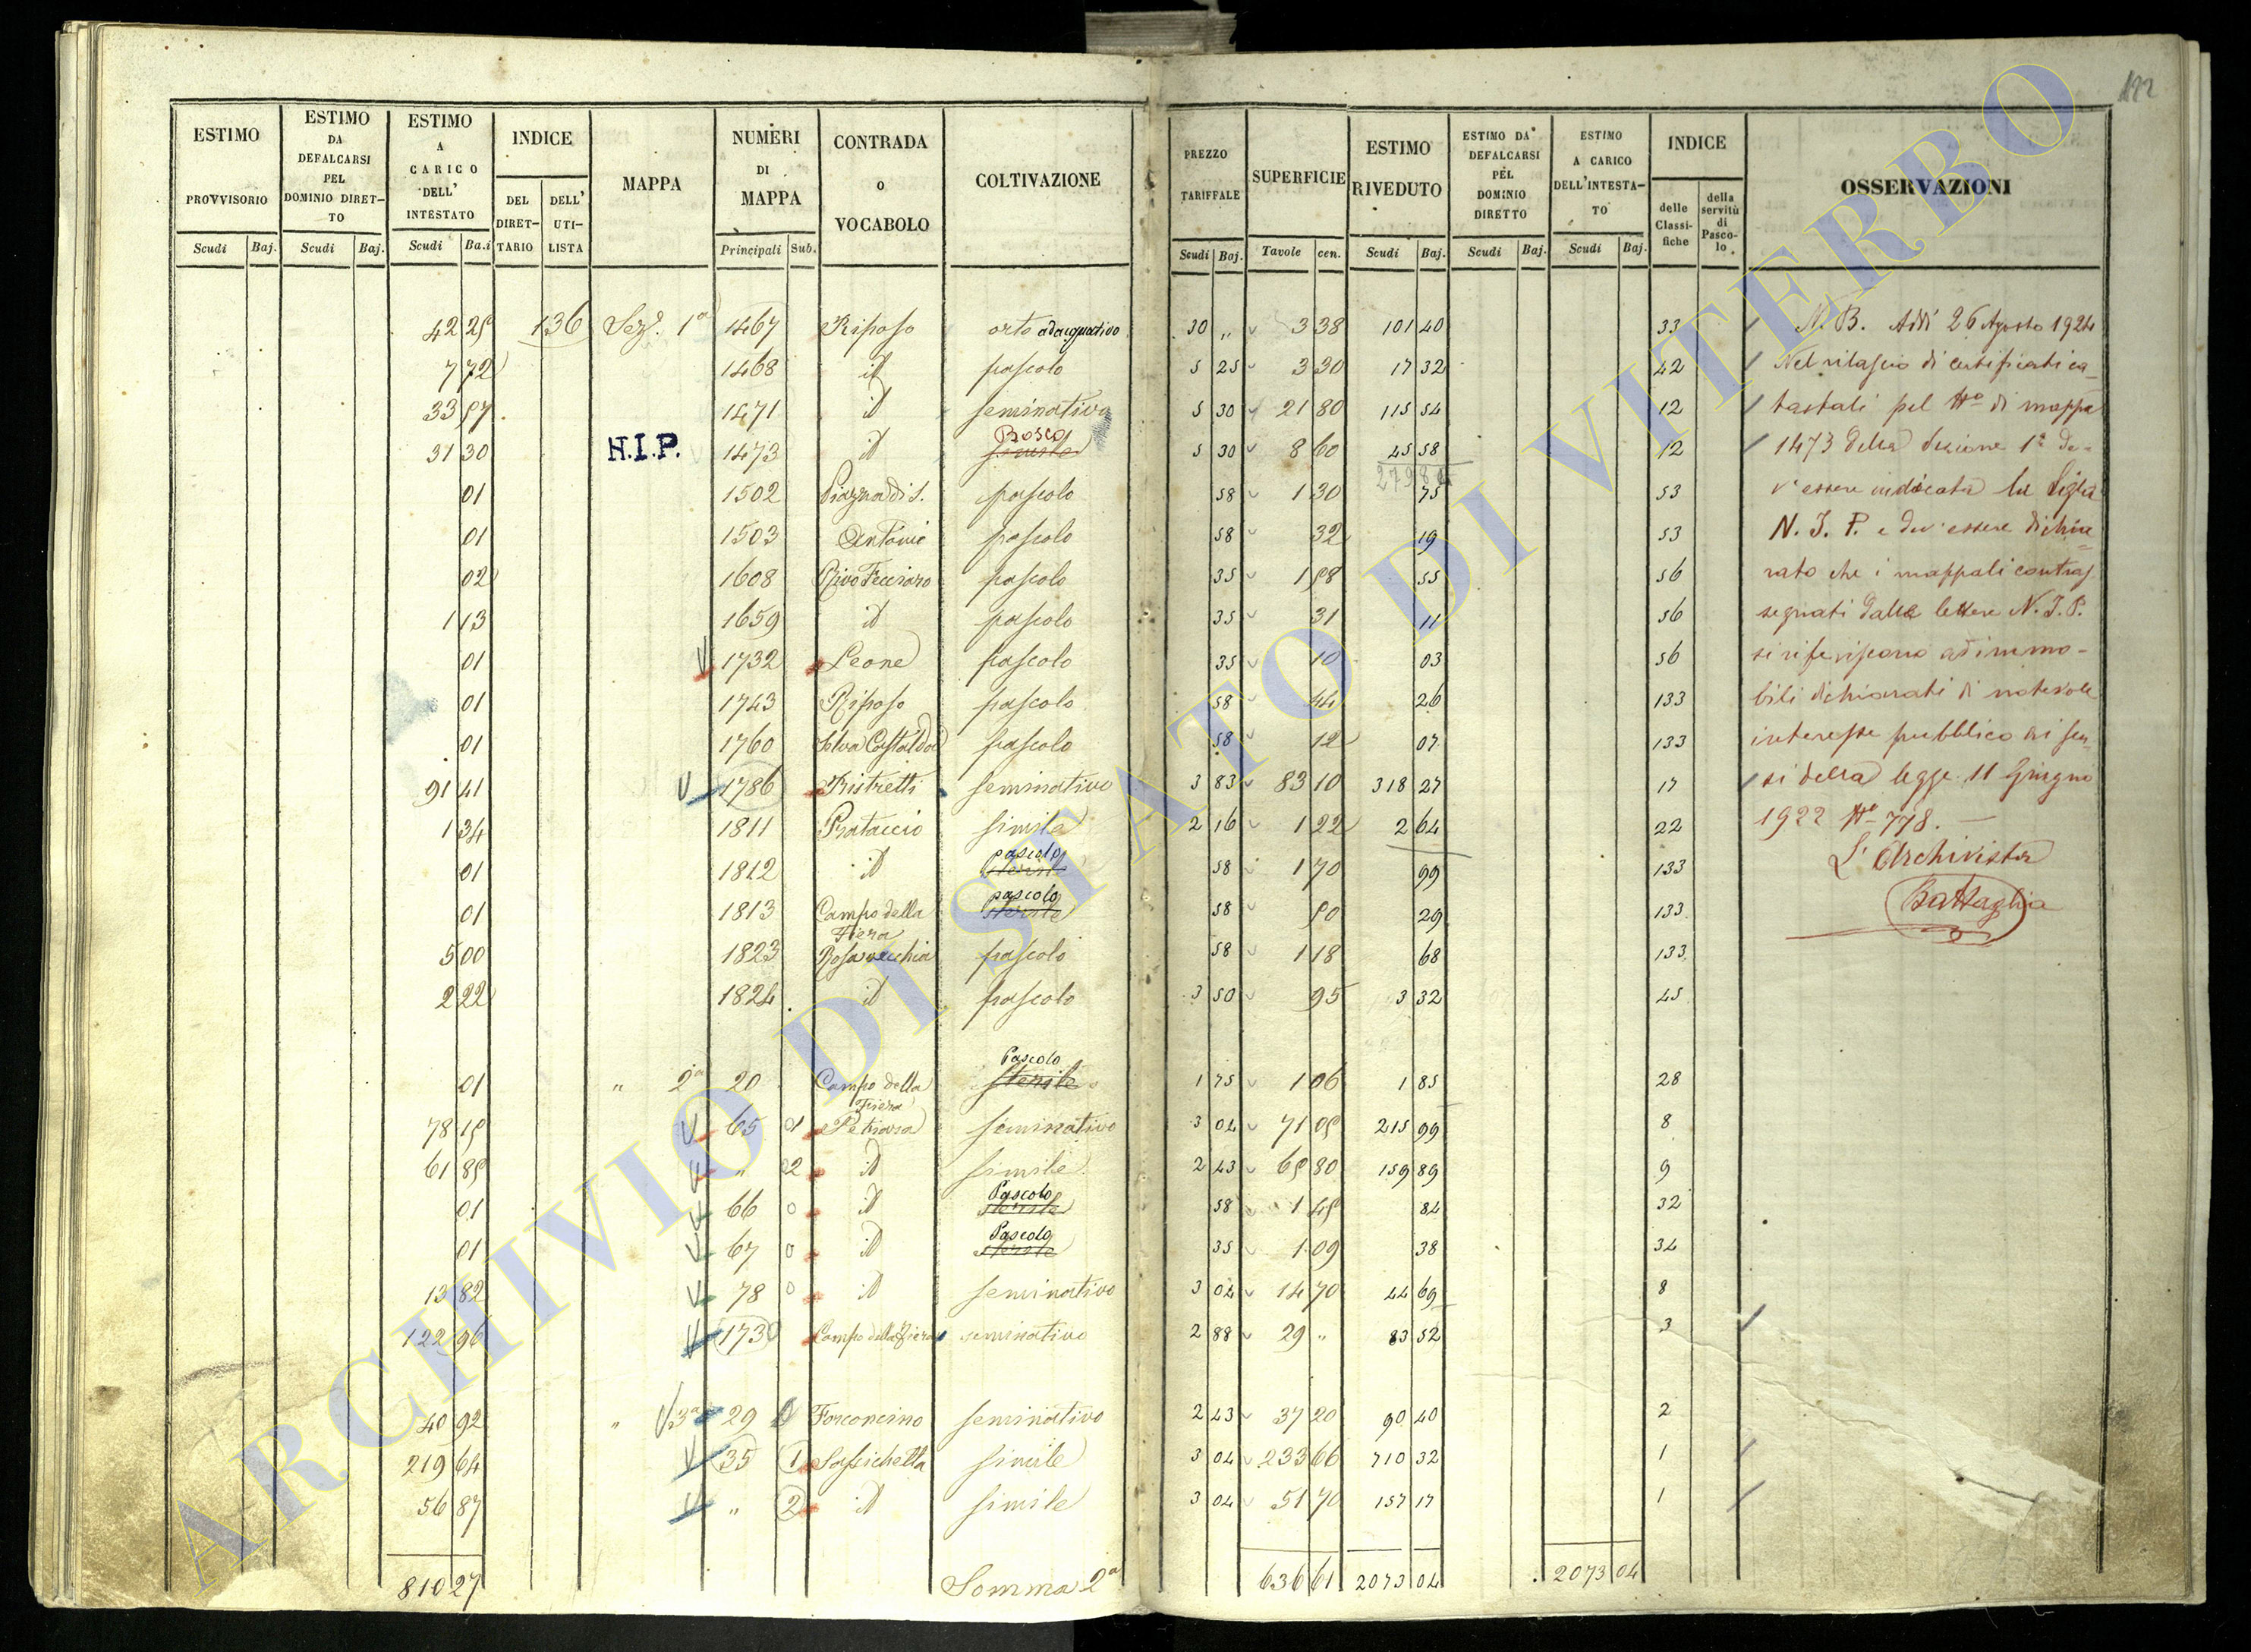 122
ESTIMO PROVVISORIO
ESTIMO DA DEFALCARSI PEL DOMINIO DIRETTO
ESTIMO A CARICO DELL' INTESTATO
INDICE
DEL DIRETTARIO
DELL' UTILISTA
MAPPA
NUMERI DI MAPPA
CONTRADA o VOCABOLO
COLTIVAZIONE
PREZZO TARIFFALE
SUPERFICIE
ESTIMO RIVEDUTO
ESTIMO DA DEFALCARSI PEL DOMINIO DIRETTO
ESTIMO A CARICO DELL'INTESTATO
INDICE
delle Classifiche
della servitù di Pascolo
OSSERVAZIONI
Scudi Baj. Scudi Baj. Scudi Ba.i Principali Sub. Scudi Baj. Tavole cen. Scudi Baj. Scudi Baj. Scudi Baj.
42 25 136 Sez.e 1a 1467 Riposo orto adacquativo 30 „ 3 38 101 40 33
7 72 1468 id pascolo 5 25 3 30 17 32 42
33 57 1471 id seminativo 5 30 21 80 115 54 12
31 30 H.I.P. 1473 id Bosco 5 30 8 60 45 58 12
01 1502 Piazza di S. pascolo 58 1 30 75 53
01 1503 Antonio pascolo 58 32 19 53
02 1608 Rivo Fecciaro pascolo 35 1 58 55 56
1 13 1659 id pascolo 35 31 11 56
01 1732 Leone pascolo 35 10 03 56
01 1743 Riposo pascolo 58 44 26 133
01 1760 Selva Castaldo pascolo 58 12 07 133
91 41 1786 Ristretti seminativo 3 83 83 10 318 27 17
1 34 1811 Prataccio simile 2 16 1 22 2 64 22
01 1812 id pascolo sterile 58 1 70 99 133
01 1813 Campo della Fiera pascolo sterile 58 50 29 133
5 00 1823 Rosavecchia pascolo 58 1 18 68 133
2 22 1824 id pascolo 3 50 95 3 32 45
01 „ 2a 20 Campo della Fiera Pascolo sterile 1 75 1 06 1 85 28
78 15 65 1 Petriara seminativo 3 04 71 05 215 99 8
61 85 „ 2 id simile 2 43 65 80 159 89 9
01 66 0 id Pascolo sterile 58 1 45 84 32
01 67 0 id Pascolo sterile 35 1 09 38 34
13 82 78 0 id seminativo 3 04 14 70 44 69 8
122 96 173 0 Campo della Fiera seminativo 2 88 29 „ 83 52 3
40 92 „ 3a 29 Forconcino seminativo 2 43 37 20 90 40 2
219 64 35 1 Sassichella simile 3 04 233 66 710 32 1
56 87 „ 2 id simile 3 04 51 70 157 17 1
810 27 Somma 2a 636 61 2073 04 2073 04
N. B. Addì 26 Agosto 1924
Nel rilascio di certificati ca-
tastali pel No di mappa
1473 della Sezione 1a de-
v'essere indicata la Sigla
N. I. P. e dev'essere dichia-
rato che i mappali contras-
segnati dalle lettere N. I. P.
si riferiscono ad immo-
bili dichiarati di notevole
interesse pubblico ai sen-
si della legge 11 Giugno
1922 No 778. —
L'Archivista
Battaglia
ARCHIVIO DI STATO DI VITERBO